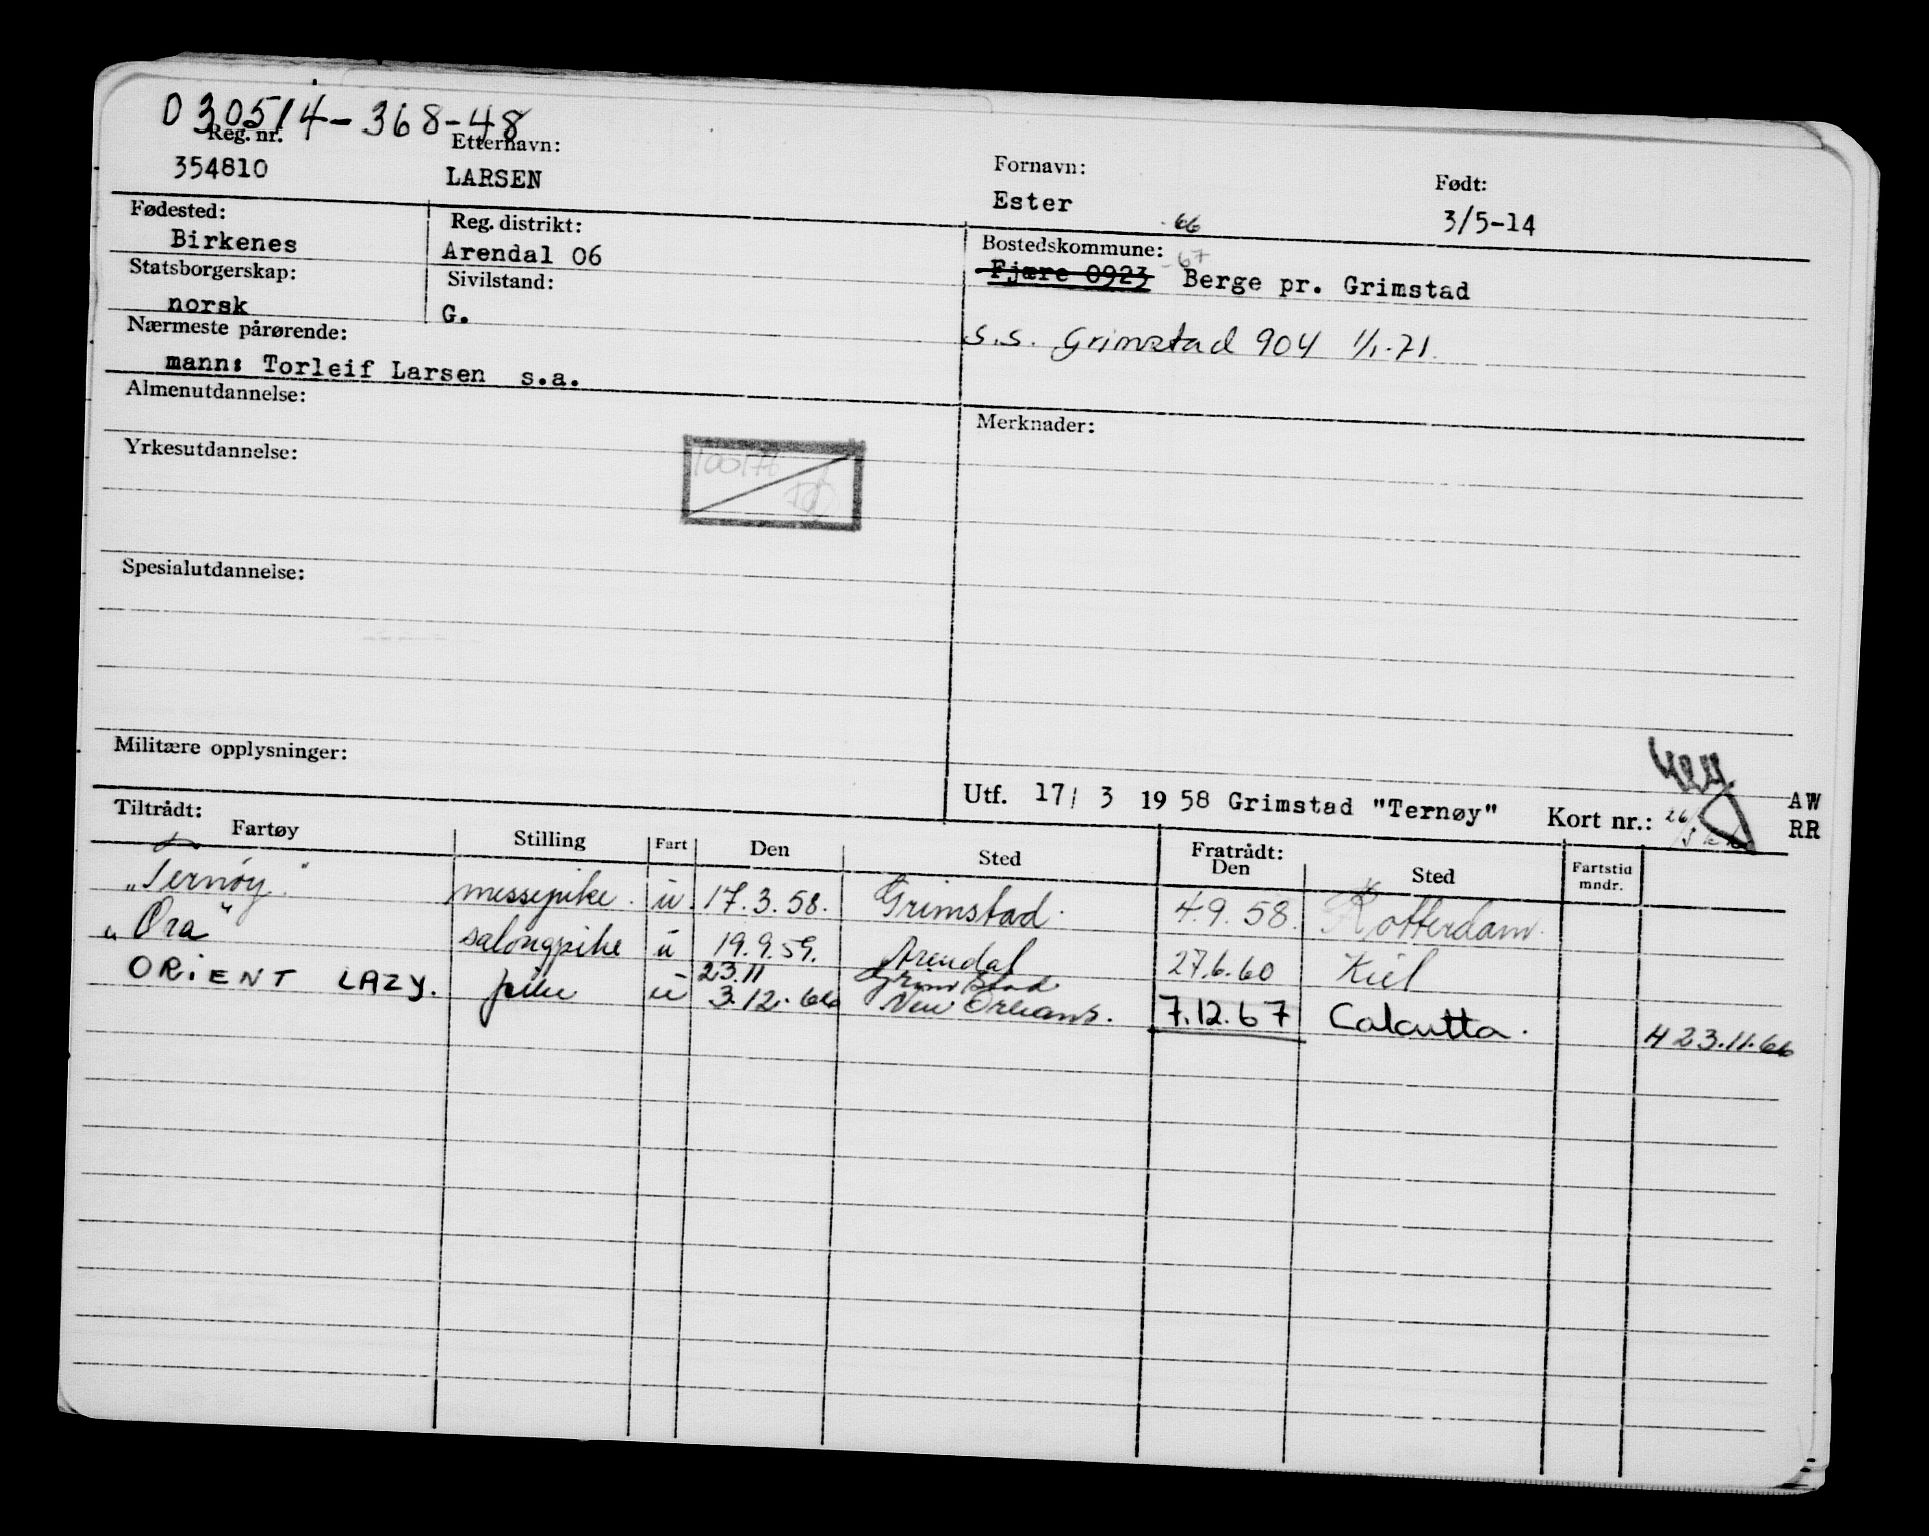 030514-368-48
Reg. nr. Etternavn: Fornavn: Født:
354810 LARSEN Ester 3/5-14
Fødested: Reg. distrikt: Bostedskommune: -66
Birkenes Arendal 06 Fjære 0923 -67 Berge pr. Grimstad
Statsborgerskap: Sivilstand:
norsk G.
s.s. Grimstad 904 1/1-71.
Nærmeste pårørende:
mann: Torleif Larsen s.a.
Almenutdannelse: Merknader:
Yrkesutdannelse:
Spesialutdannelse:
Militære opplysninger:
Utf. 17/ 3 1958 Grimstad "Ternøy" Kort nr.: AW
RR
Tiltrådt: Fratrådt:
Fartøy Stilling Fart Den Sted Den Sted Fartstid mndr.
"Ternøy" messepike. u. 17.3.58. Grimstad. 4.9.58. Rotterdam.
"Ora" salongpike u 19.9.59. Arendal 27.6.60 Kiel
ORIENT LAZY. pike u 23.11 Grimstad
3.12.66 New Orleans. 7.12.67 Calcutta. 4 23.11.66